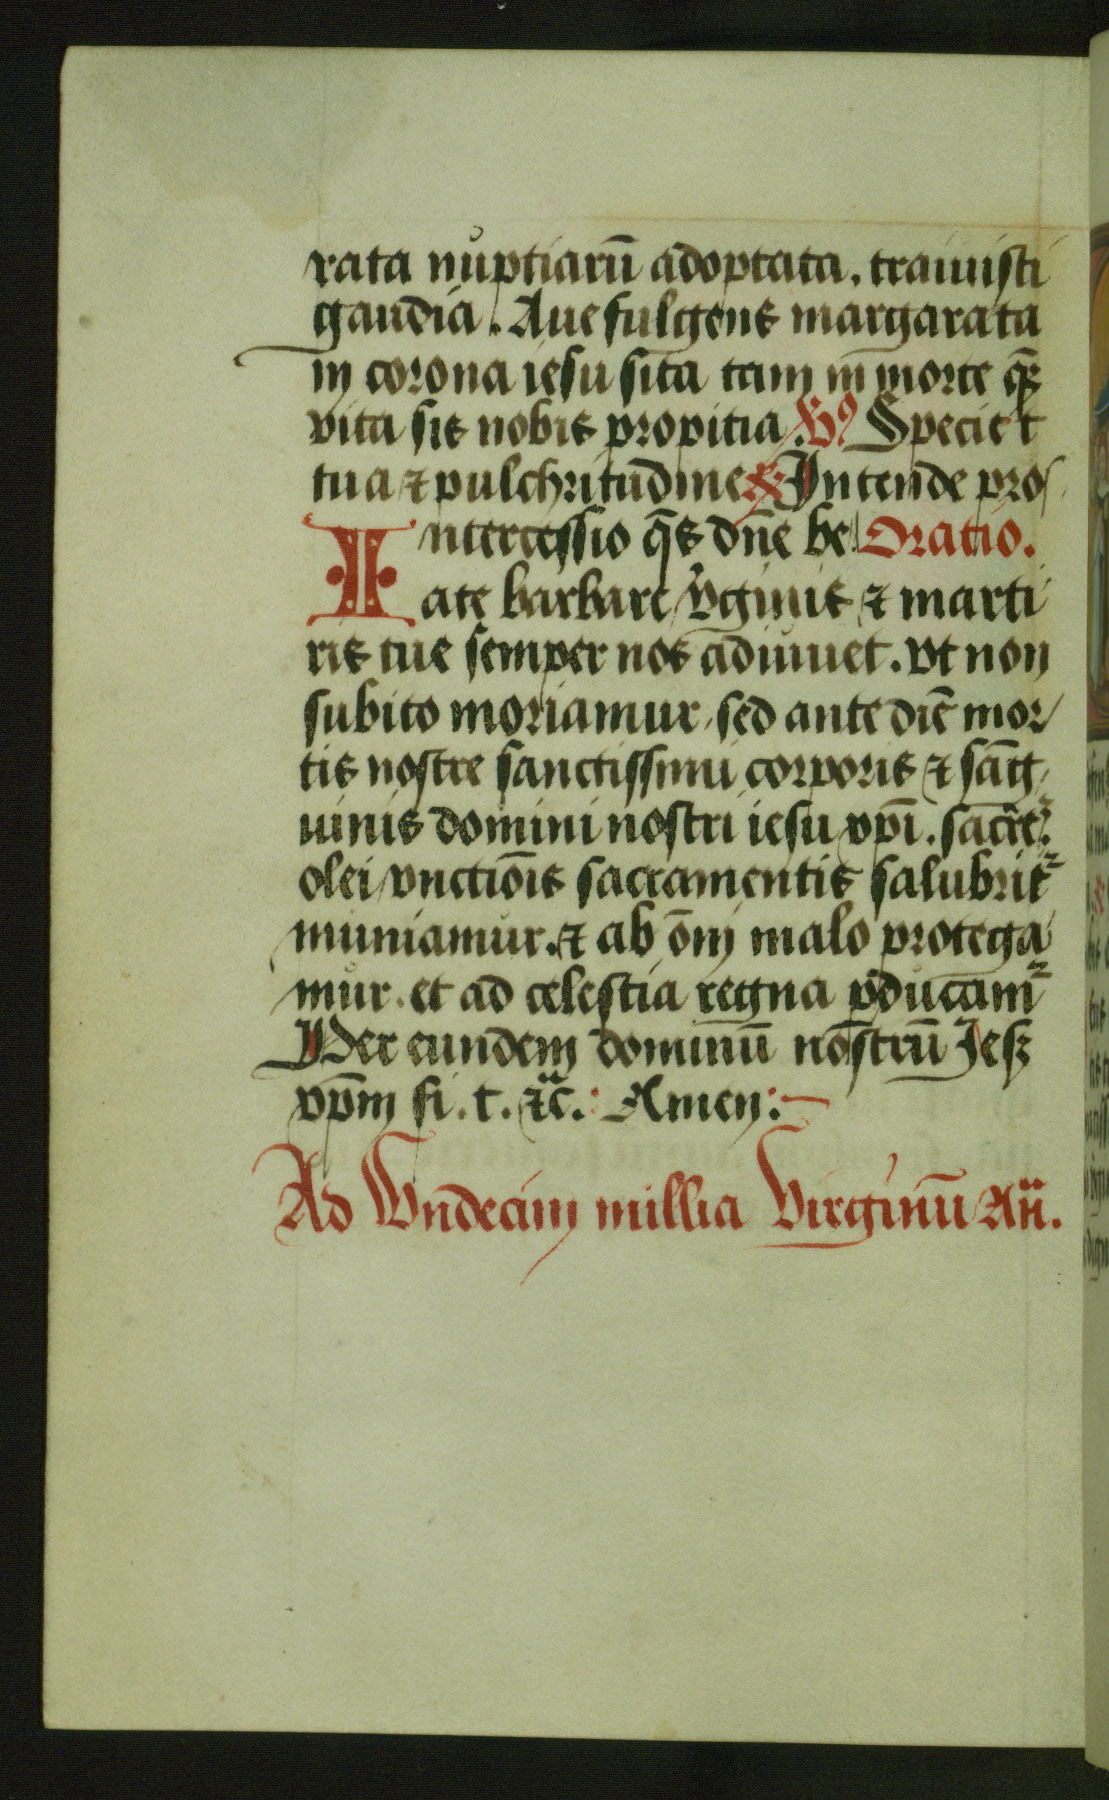 rata nuptiarū adoptata. transiuisti
gaudia. Aue fulgens margarata
in corona iesu sita tam in morte q̄
vita sis nobis propitia. Specie t
tua ⁊ pulchritudine Intende pro
Intercessio q̄s dn̄e be Oratio.
ate barbare v̄ginis ⁊ marti
ris tue semper nos adiuuet. vt non
subito moriamur. sed ante diē mor
tis nostre sanctissimi corporis ⁊ sāg
uinis domini nostri iesu xp̄i. sacre
olei vnctiōis sacramentis salubrit̄
muniamur. ⁊ ab om̄i malo protega
mur. et ad celestia regna p̄ducam̄
Per eundem dominū nostrū Jesꝫ
xp̄m fi. t. ⁊c. Amen:
Ad Vndecim millia Virginū Añ.